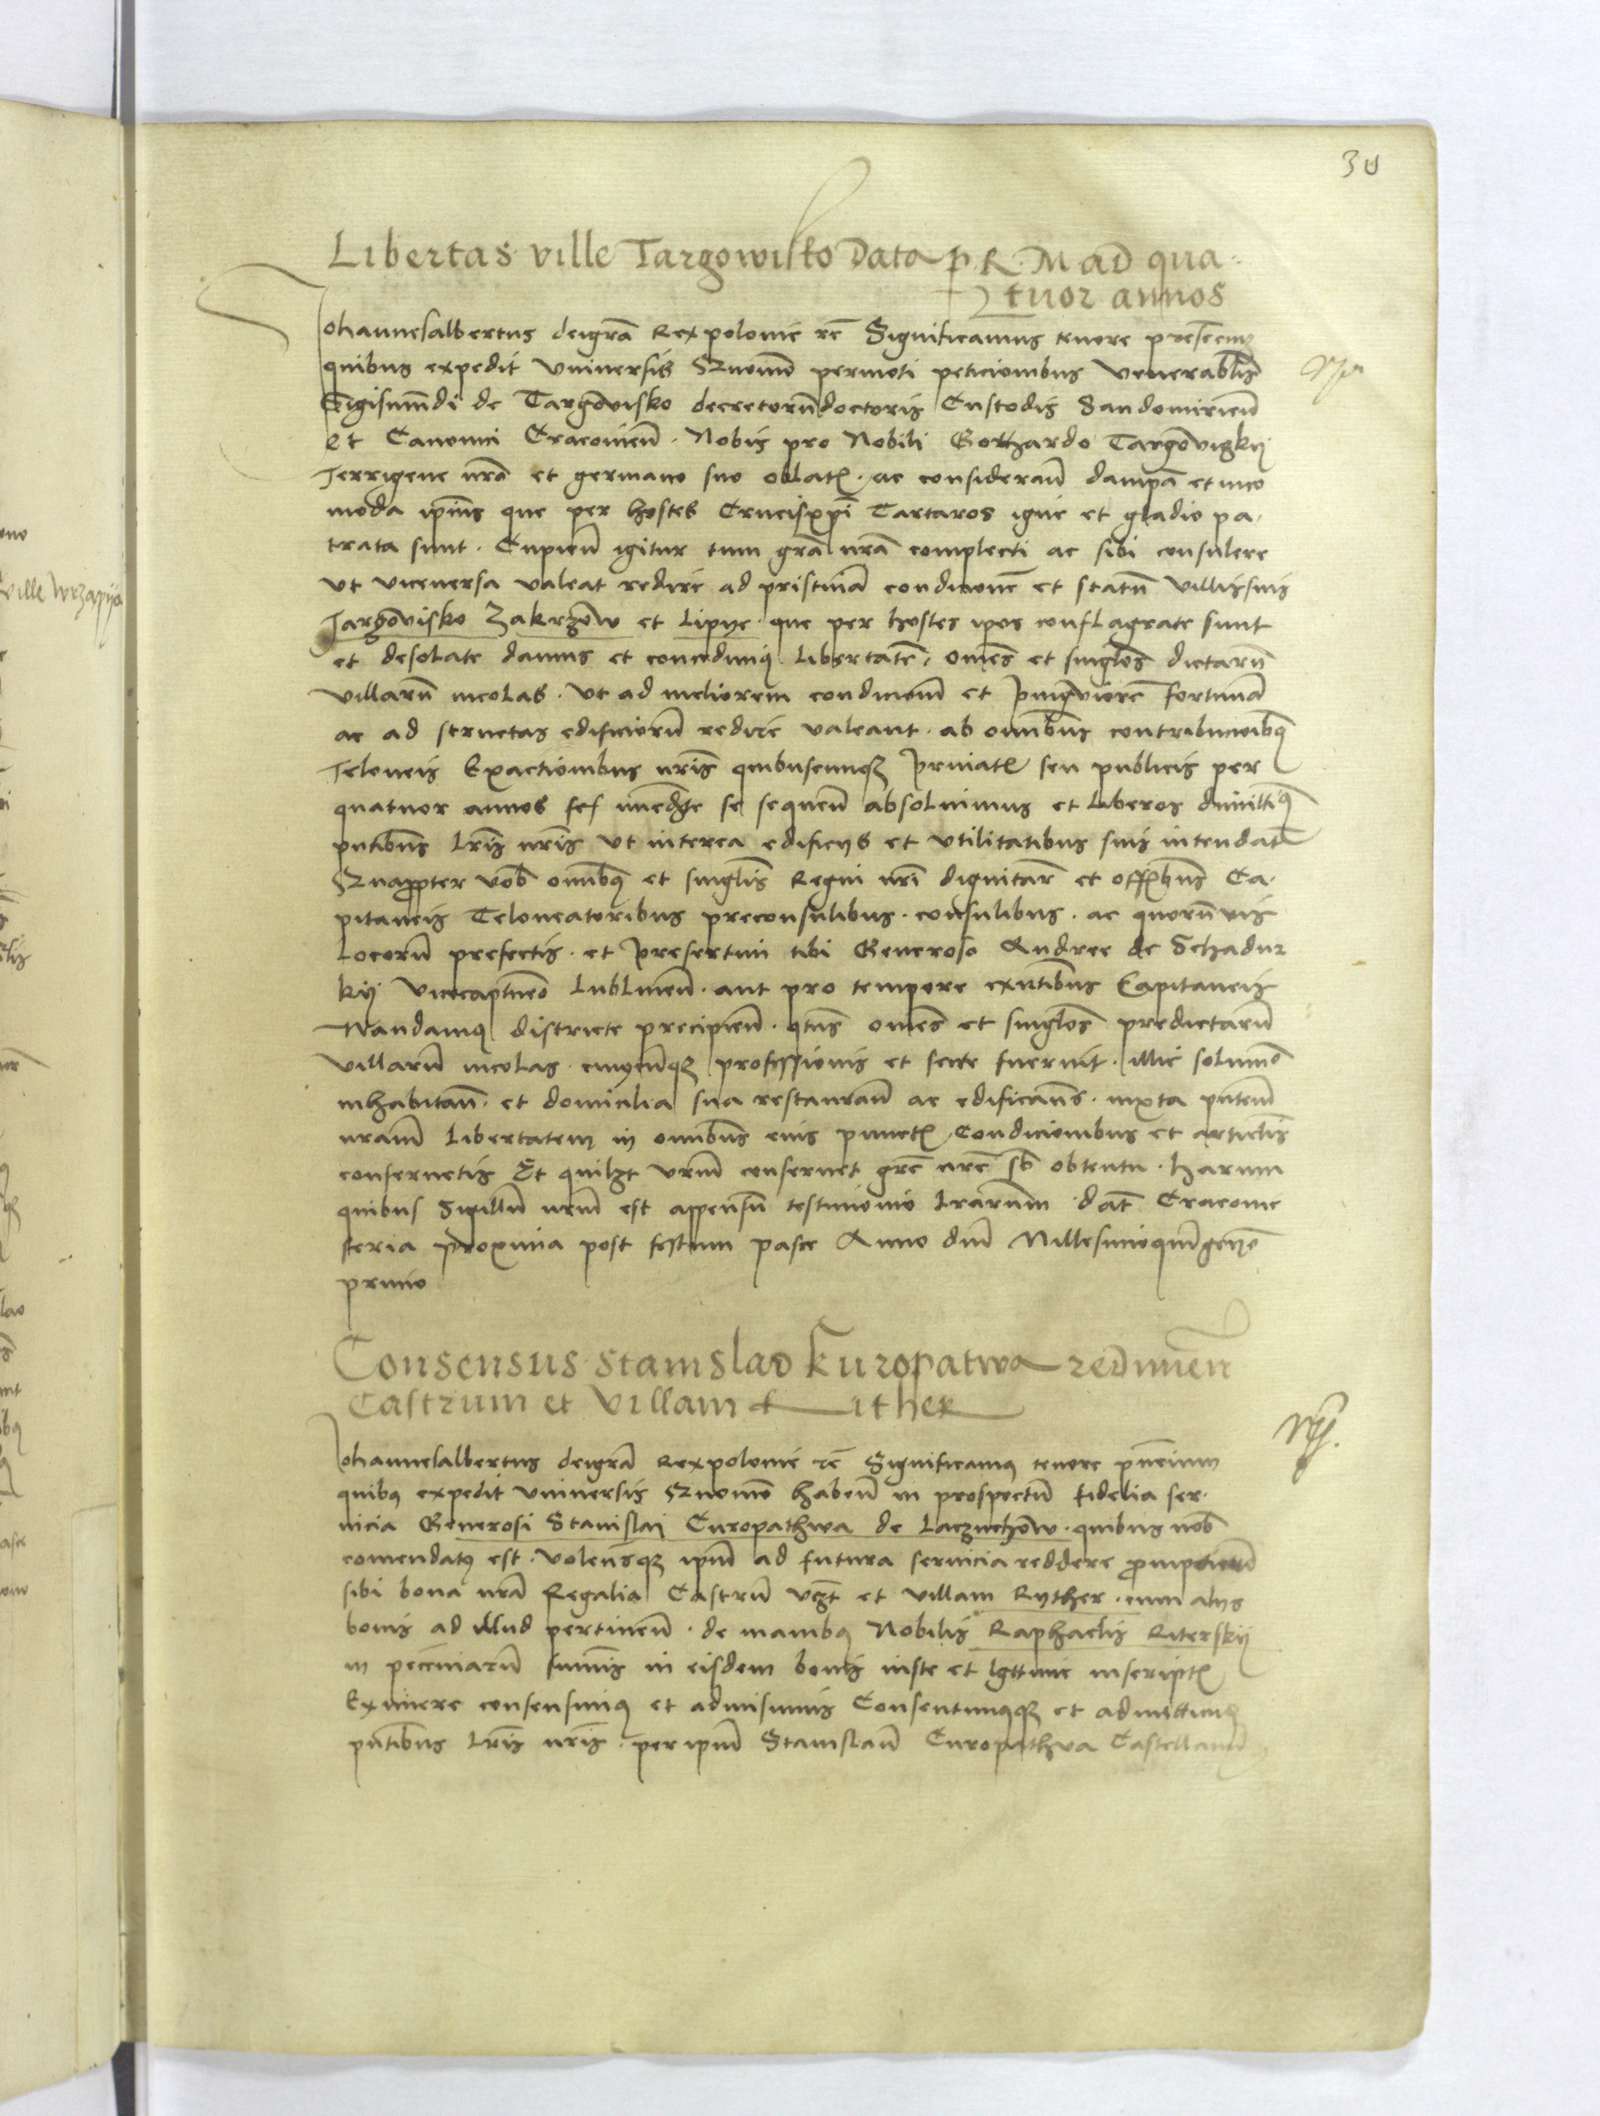 30
Libertas ville Targowisko Data p R M ad qua
tuor annos
Johannesalbertus deigrã Rex polonie rc̃ Significamus tenore presencm̃
quibus expedit Universis Quomõ permoti peticionibus Venerabilis
Sigismundi de Targowisko decretorũ doctoris Custodis Sandomirieñ
Et Canonici Cracovieñ. Nobis pro Nobili Gothardo Targowiskij
Terrigene nrõ et germano suo oblatis. ac considerañ dampna et inco
moda ipius que per hostes Crucis xpi Tartaros igne et gladio pa
trata sunt. Cupieñ igitur eum grã nrã complecti ac sibi consulere
ut viceversa valeat redire ad pristinã condicionẽ et statũ Villis suis
Targowisko Zakrzow et Lipye que per hostes ipos conflagrate sunt
et desolate damus et concedimus libertatẽ. Omẽs et singlos dictarũ
villarũ incolas. Ut ad meliorem condicionẽ et pinguiorẽ fortunã
ac ad structas edificiorũ redire valeant. ab omnibus contribucionibus
Teloneis Exactionibus nris quibuscunque privatis seu publicis per
quatuor annos se imediate se sequeñ absolvimus et liberos dimittimus
pntibus lris nris Ut interea edificys et utilitatibus suis intendant
Quapropter vob omnibus et singlis Regni nri dignitar et offibus Ca
pitaneis Teloneatoribus preconsulibus. consulibus. ac quorũvis
locorũ prefectis. et presertim tibi Generoso Andree de Schadur
kij Vicecaptneo Lublineñ. aut pro tempore exntibus Capitaneis
Mandamus districte precipieñ. qtus omẽs et singlos predictarũ
villarũ incolas cuiuscunque professionis et secte fuerint. illic solummõ
inhabitañ. et domicilia sua restaurañ ac edificañ. iuxta pntem
nram Libertatem in omnibus eius punctis Condicionibus et articlis
conservetis Et quilibet vrm conservet grẽ nrẽ sb obtentu. harum
quibus Sigillũ nrm est appensũ testimonio Lrarum. dat Cracovie
feria proxima post festum pasce Anno dni Millesimoquingenõ
primo
Consensus Stanislao Kuropatwa redimeñ
Castrum et Villam Rither
Johannesalbertus deigrã Rex polonie rc̃ Significamus tenore pncium
quibus expedit Universis Quomõ habeñ in prospectũ fidelia ser
vicia Generosi Stanislai Curopathwa de Laczuchow quibus nob
comendatus est. volensque ipm ad futura servicia reddere prompcierẽ
sibi bona nrã Regalia Castrũ vgt et villam Ryther. cum alys
bonis ad illud pertineñ. de manibus Nobilis Raphaelis Riterskij
in pecuniarũ sumis in eisdem bonis iuste et lgttime inscriptis
Eximere consensimus et admisimus Consentimusque et admittimus
pntibus lris nris. per ipm Stanislaũ Curopathwa Castellanũ
ville Wrzapya